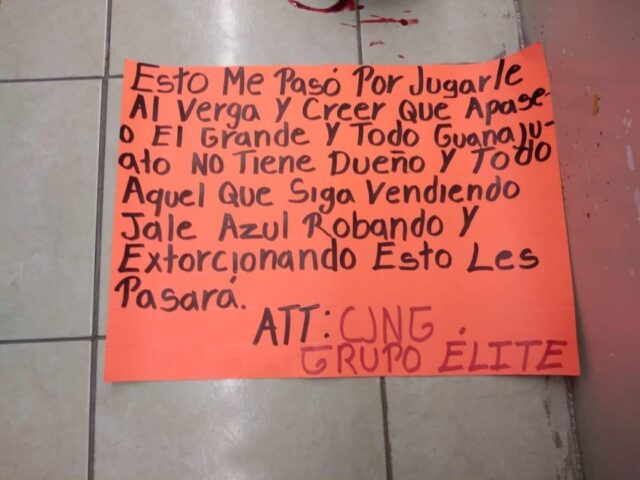 Esto Me Pasó Por Jugarle
Al Verga Y Creer Que Apase-
o El Grande Y Todo Guanaju-
ato No Tiene Dueño Y Todo
Aquel Que Siga Vendiendo
Jale Azul Robando Y
Extorcionando Esto Les
Pasará.
ATT: CJNG
GRUPO ÉLITE